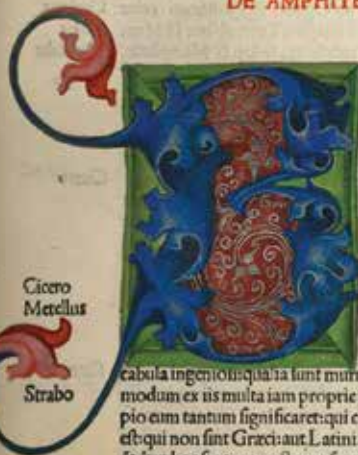 DE AMPHITE
Cicero
Metellus
Strabo
cabula ingeniosi: qualia sunt mur
modum ex iis multa iam proprie
pio eum tantum significaret: qui c
est: qui non sint Græci: aut Latini